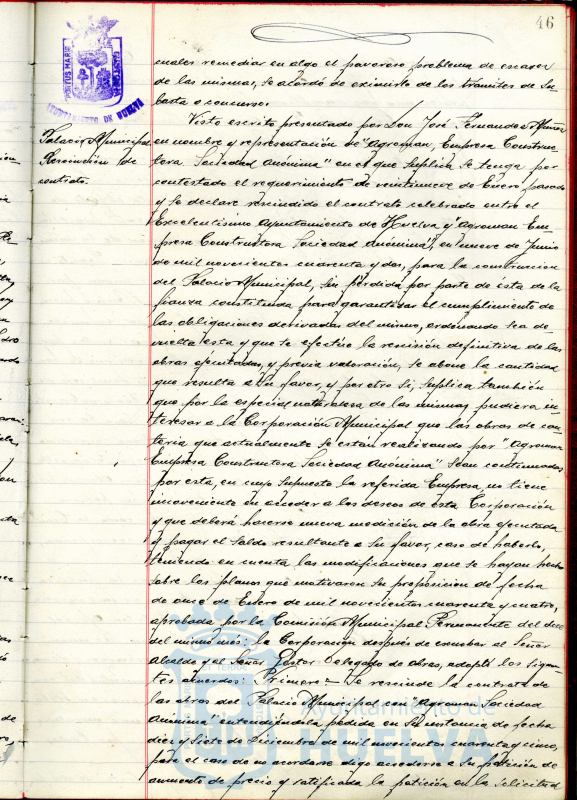 46
PORTUS MARIS
AYUNTAMIENTO DE HUELVA
Palacio Municipal
Rescisión de
contrato.
cuales remediar en algo el pavoroso problema de escasez
de las mismas, se acordó de eximirlo de los trámites de Su-
basta o concurso.
Visto escrito presentado por Don José Fernandez Muñoz
en nombre y representación de "Agroman, Empresa Construc-
tora Sociedad Anónima" en el que suplica se tenga por
contestado el requerimiento de veintinueve de Enero pasado
y se declare rescindido el contrato celebrado entre el
Excelentísimo Ayuntamiento de Huelva y "Agroman Em-
presa Constructora Sociedad Anónima", en nueve de Junio
de mil novecientos cuarenta y dos, para la construcción
del Palacio Municipal, sin pérdida por parte de ésta de la
fianza constituida para garantizar el cumplimiento de
las obligaciones derivadas del mismo, ordenando sea de-
vuelta esta y que se efectúe la revisión definitiva de las
obras ejecutadas, y previa valoración, se abone la cantidad
que resulta a su favor, y por otro si, suplica también
que por la especial naturaleza de las mismas pudiera in-
teresar a la Corporación Municipal que las obras de can-
teria que actualmente se están realizando por "Agroman
Empresa Constructora Sociedad Anónima" sean continuadas
por esta, en cuyo supuesto la referida Empresa, no tiene
inconveniente en acceder a los deseos de esta Corporación
y que deberá hacerse nueva medición de la obra ejecutada
y pagar el saldo resultante a su favor, caso de haberlo,
teniendo en cuenta las modificaciones que se hayan hecho
sobre los planos que motivaron su proposición de fecha
de once de Enero de mil novecientos cuarenta y cuatro,
aprobada por la Comisión Municipal Permanente del doce
del mismo mes; la Corporación después de escuchar al Señor
Alcalde y el Señor Gestor Delegado de obras, adoptó los siguien-
tes acuerdos: Primero = Se rescinde la contrata de
las obras del Palacio Municipal con "Agroman Sociedad
Anónima" entendiéndola pedida en su instancia de fecha
diez y siete de Diciembre de mil novecientos cuarenta y cinco,
para el caso de no acordarse digo accederse a su petición de
aumento de precio y ratificada la petición en la solicitud
Ayuntamiento de
HUELVA